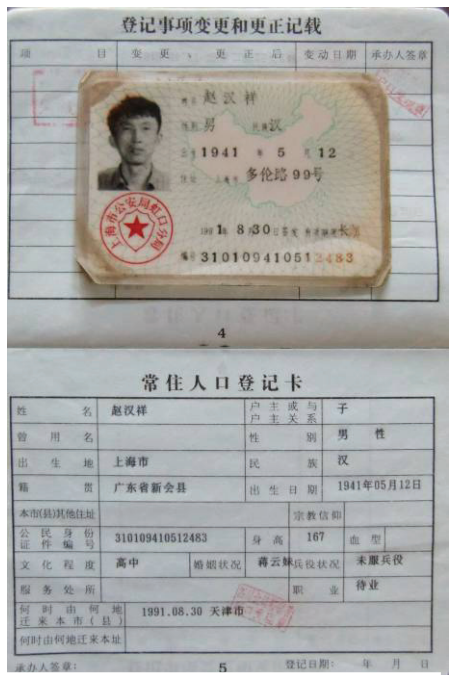 登记事项变更和更正记载
项 目 变 更 、 更 正 后 变动日期 承办人签章
姓名 赵汉祥
性别 男 民族 汉
生于 1941 年 5 月 12
住址 上海市 多伦路 99号
1991. 8 30日签发 有效期限 长期
编号 310109410512483
上海市公安局虹口分局
4
常住人口登记卡
姓 名 赵汉祥 户主或与户主关系 子
曾用名 性别 男 性
出生地 上海市 民族 汉
籍贯 广东省新会县 出生日期 1941年05月12日
本市(县)其他住址 宗教信仰
公民身份证件编号 310109410512483 身高 167 血型
文化程度 高中 婚姻状况 蒋云妹 兵役状况 未服兵役
服务处所 职业 待业
何时由何地迁来本市(县) 1991.08.30 天津市
何时由何地迁来本址
承办人签章: 5 登记日期: 年 月 日